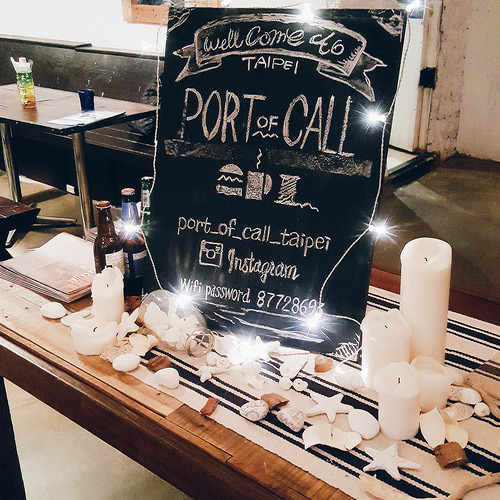 Well Come to
TAIPEI
PORT OF CALL
port_of_call_taipei
Instagram
Wifi password 87728693